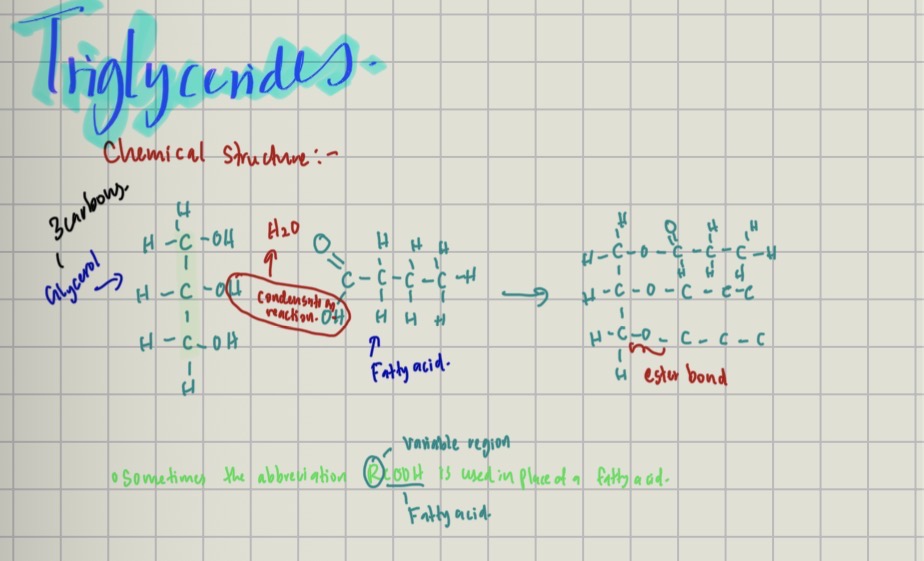 Triglycerides.
Chemical Structure:-
3 carbons.
Glycerol
H
H - C - OH
H - C - OH
H - C - OH
H
H₂O
Condensation reaction.
O
H H H
C - C - C - C - H
OH H H H
Fatty acid.
H O H H
H - C - O - C - C - C - H
H H H
H - C - O - C - C - C
H - C - O - C - C - C
H
ester bond
variable region
• Sometimes the abbreviation RCOOH is used in place of a fatty acid.
Fatty acid.